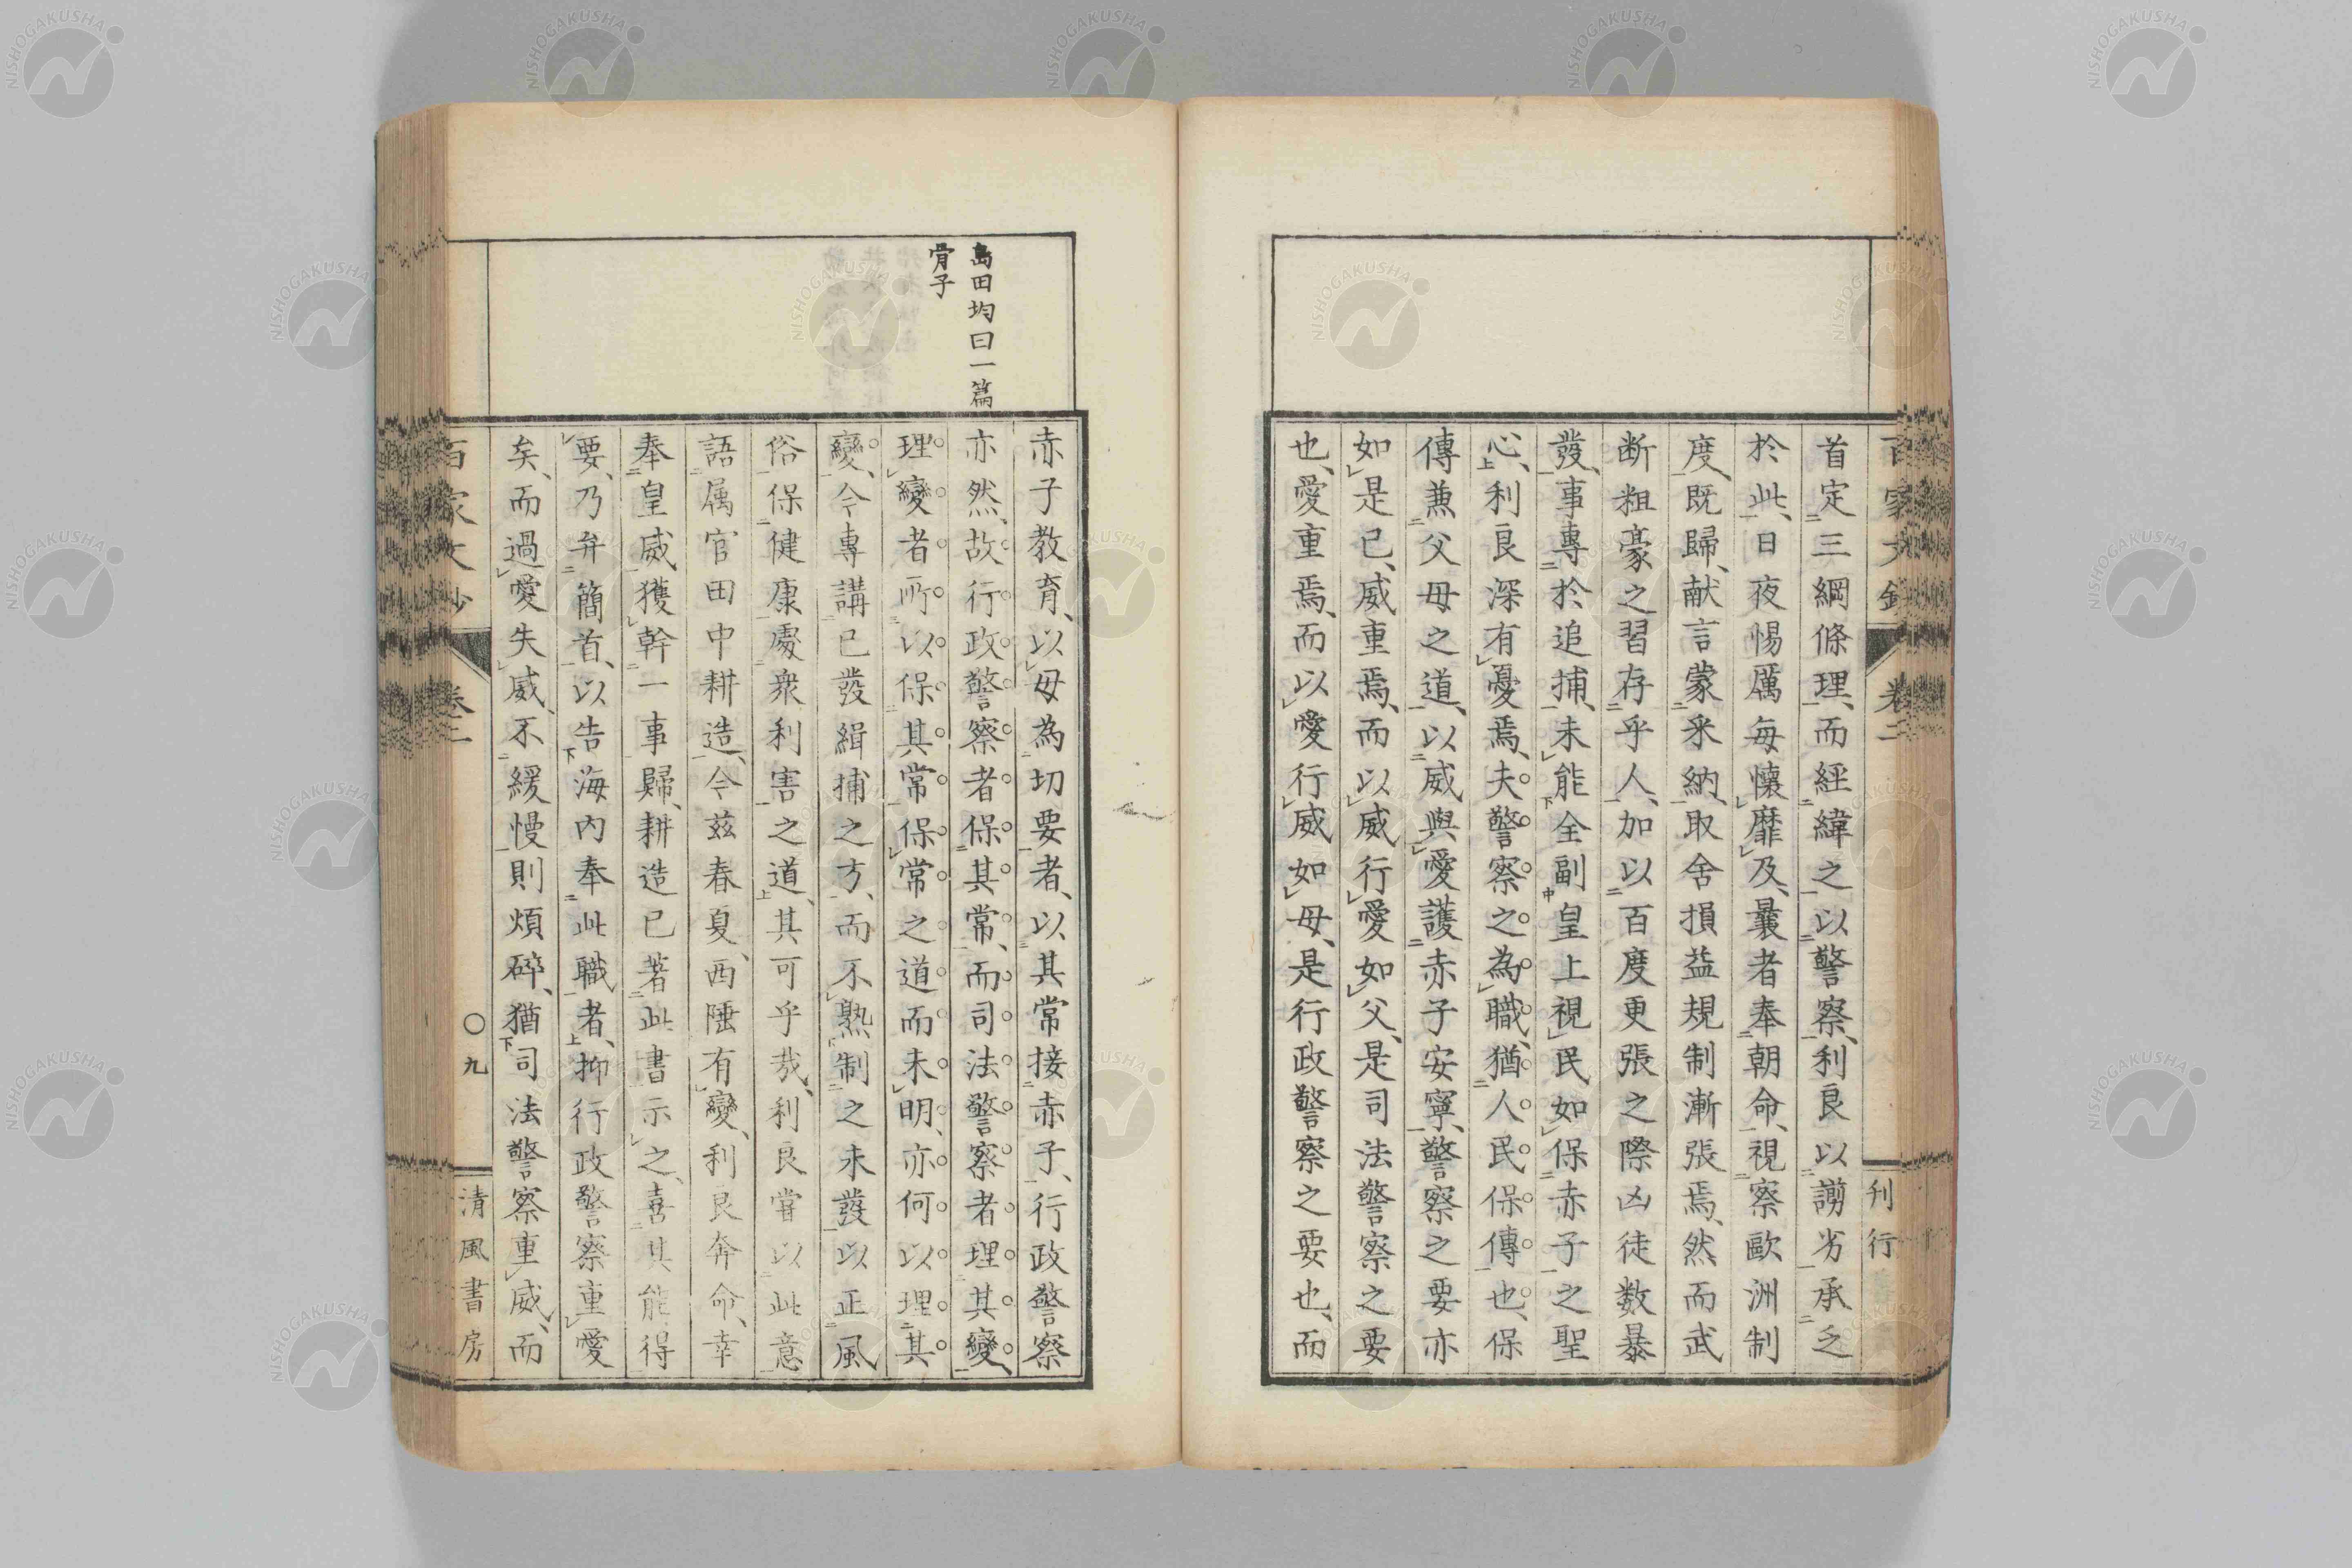 首定三綱條理、而經緯之以警察、利良以謭劣承乏
於此、日夜惕厲每懷靡及、曩者奉朝命、視察歐洲制
度、既歸、献言蒙釆納、取舍損益規制漸張焉、然而武
断粗豪之習存乎人、加以百度更張之際凶徒数暴
發、事專於追捕、未能全副皇上視民如保赤子之聖
心、利良深有憂焉、夫警察之為職、猶人民保傳也、保
傳兼父母之道、以威與愛護赤子安寧、警察之要亦
如是已、威重焉、而以威行愛如父、是司法警察之要
也、愛重焉、而以愛行威如母、是行政警察之要也、而
百家文鈔
卷二
刊行
島田均曰一篇
骨子
赤子教育、以母為切要者、以其常接赤子、行政警察
亦然、故行政警察者保其常、而司法警察者理其變、
理變者所以保其常保常之道而未明、亦何以理其
變、今專講已發緝捕之方、而不熟制之未發以正風
俗保健康處衆利害之道、其可乎哉、利良嘗以此意
語属官田中耕造、今茲春夏、西陲有變、利良奔命、幸
奉皇威獲幹一事歸、耕造已著此書示之、喜其能得
要、乃弁簡首、以告海內奉此職者、抑行政警察重愛
矣、而過愛失威、不緩慢則煩碎、猶司法警察重威、而
百家文鈔
卷二
〇九
清風書房
NISHOGAKUSHA